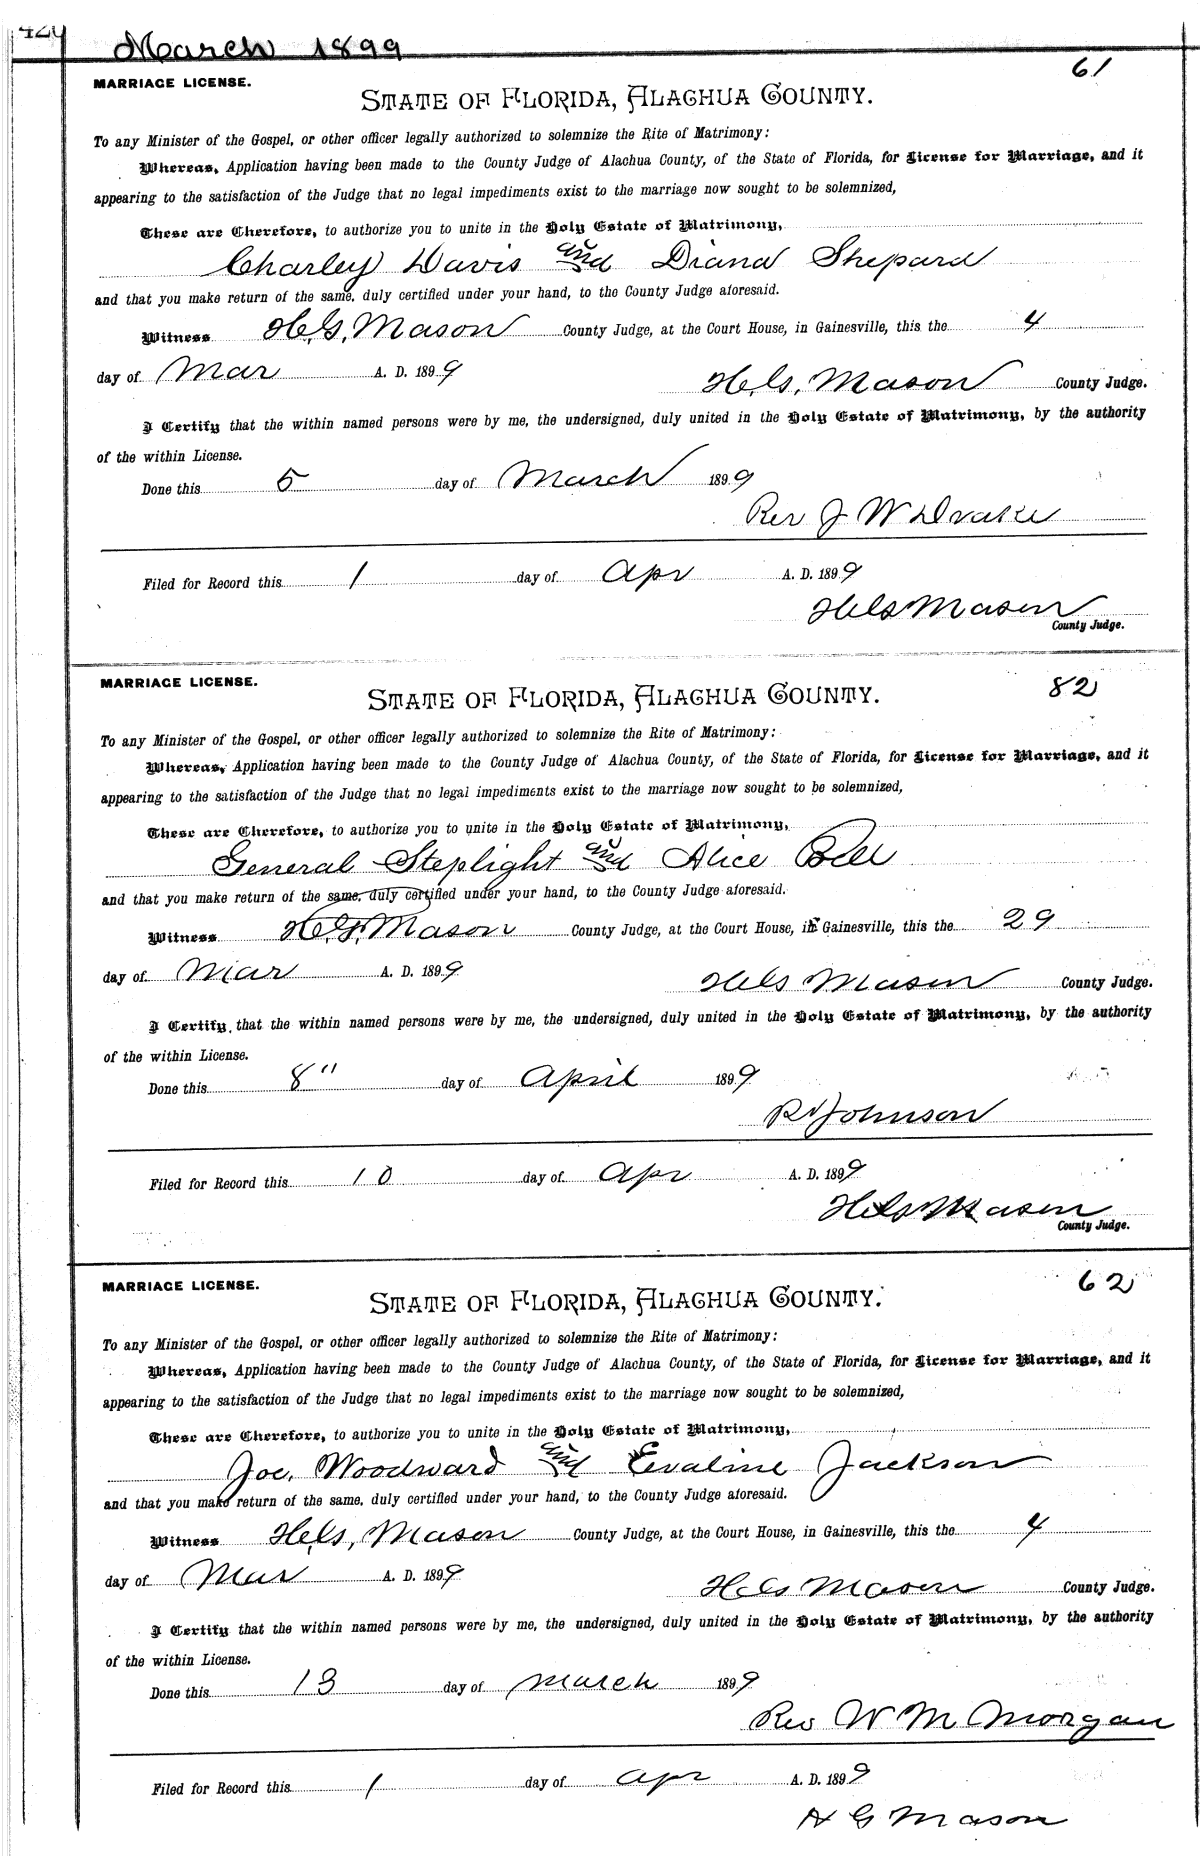 March 1899
61
MARRIAGE LICENSE.
STATE OF FLORIDA, ALACHUA COUNTY.
To any Minister of the Gospel, or other officer legally authorized to solemnize the Rite of Matrimony:
Whereas, Application having been made to the County Judge of Alachua County, of the State of Florida, for License for Marriage, and it
appearing to the satisfaction of the Judge that no legal impediments exist to the marriage now sought to be solemnized,
These are Therefore, to authorize you to unite in the Holy Estate of Matrimony,
Charley Davis and Diana Shepard
and that you make return of the same, duly certified under your hand, to the County Judge aforesaid.
Witness H.G. Mason County Judge, at the Court House, in Gainesville, this the 4
day of Mar A. D. 1899
H.G. Mason County Judge.
I Certify that the within named persons were by me, the undersigned, duly united in the Holy Estate of Matrimony, by the authority
of the within License.
Done this 5 day of March 1899
Rev J W Drake
Filed for Record this 1 day of Apr A. D. 1899
H G Mason
County Judge.
MARRIAGE LICENSE.
82
STATE OF FLORIDA, ALACHUA COUNTY.
To any Minister of the Gospel, or other officer legally authorized to solemnize the Rite of Matrimony:
Whereas, Application having been made to the County Judge of Alachua County, of the State of Florida, for License for Marriage, and it
appearing to the satisfaction of the Judge that no legal impediments exist to the marriage now sought to be solemnized,
These are Therefore, to authorize you to unite in the Holy Estate of Matrimony,
General Steplight and Alice Bell
and that you make return of the same, duly certified under your hand, to the County Judge aforesaid.
Witness H.G. Mason County Judge, at the Court House, in Gainesville, this the 29
day of Mar A. D. 1899
H G Mason County Judge.
I Certify, that the within named persons were by me, the undersigned, duly united in the Holy Estate of Matrimony, by the authority
of the within License.
Done this 8" day of April 1899
Johnson
Filed for Record this 10 day of Apr A. D. 1899
H G Mason
County Judge.
MARRIAGE LICENSE.
62
STATE OF FLORIDA, ALACHUA COUNTY.
To any Minister of the Gospel, or other officer legally authorized to solemnize the Rite of Matrimony:
Whereas, Application having been made to the County Judge of Alachua County, of the State of Florida, for License for Marriage, and it
appearing to the satisfaction of the Judge that no legal impediments exist to the marriage now sought to be solemnized,
These are Therefore, to authorize you to unite in the Holy Estate of Matrimony,
Joe, Woodward and Evaline Jackson
and that you make return of the same, duly certified under your hand, to the County Judge aforesaid.
Witness H.G, Mason County Judge, at the Court House, in Gainesville, this the 4
day of Mar A. D. 1899
H G Mason County Judge.
I Certify that the within named persons were by me, the undersigned, duly united in the Holy Estate of Matrimony, by the authority
of the within License.
Done this 13 day of March 1899
Rev W M Morgan
Filed for Record this 1 day of Apr A. D. 1899
H G Mason